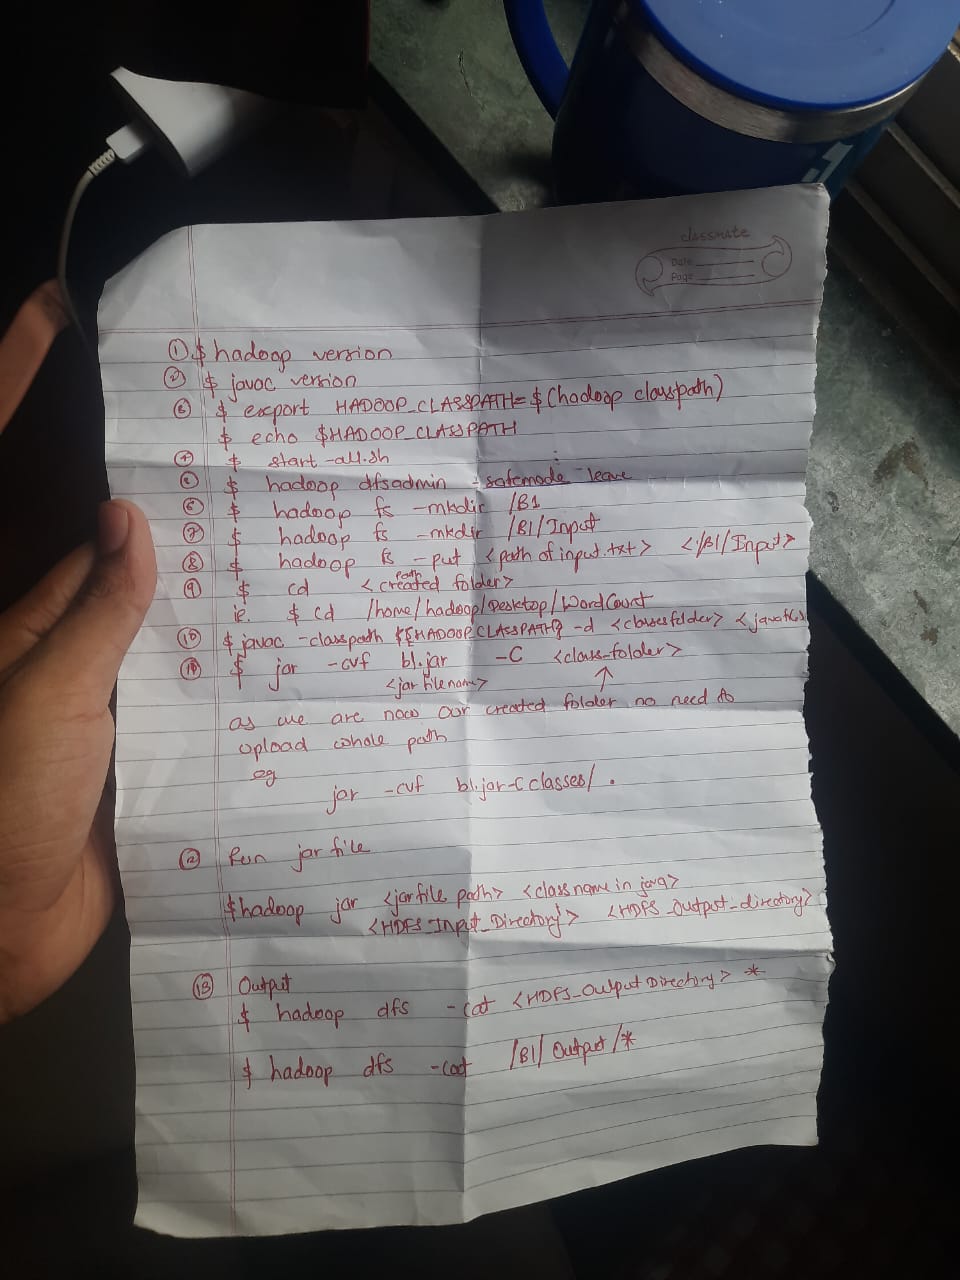 classmate
Date
Page
① $ hadoop version
② $ javac version
③ $ export HADOOP_CLASSPATH=$(hadoop classpath)
$ echo $HADOOP_CLASSPATH
④ $ start-all.sh
⑤ $ hadoop dfsadmin -safemode leave
⑥ $ hadoop fs -mkdir /B1
⑦ $ hadoop fs -mkdir /B1/Input
⑧ $ hadoop fs -put <path of input.txt> </B1/Input>
⑨ $ cd <created path folder>
ie. $ cd /home/hadoop/Desktop/WordCount
⑩ $ javac -classpath ${HADOOP_CLASSPATH} -d <classesfolder>
$ jar -cvf b1.jar -C <class-folder>
<jar filename> ↑
as we are now our created folder no need to
upload whole path
eg
jar -cvf b1.jar -C classes/ .
⑫ Run jar file
$ hadoop jar <jarfile path> <class name in java>
<HDFS_Input_Directory> <HDFS_Output_directory>
⑬ Output
$ hadoop dfs -cat <HDFS_Output Directory> *
$ hadoop dfs -cat /B1/Output/*